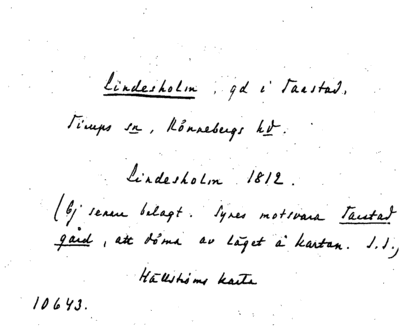 Lindesholm, gd i Taastad,
Tirups sn, Rönnebergs hd.
Lindesholm 1812.
(Ej senare belagt. Synes motsvara Taastad
gård, att döma av läget å kartan. S.S.,
Hällströms karta
10643.